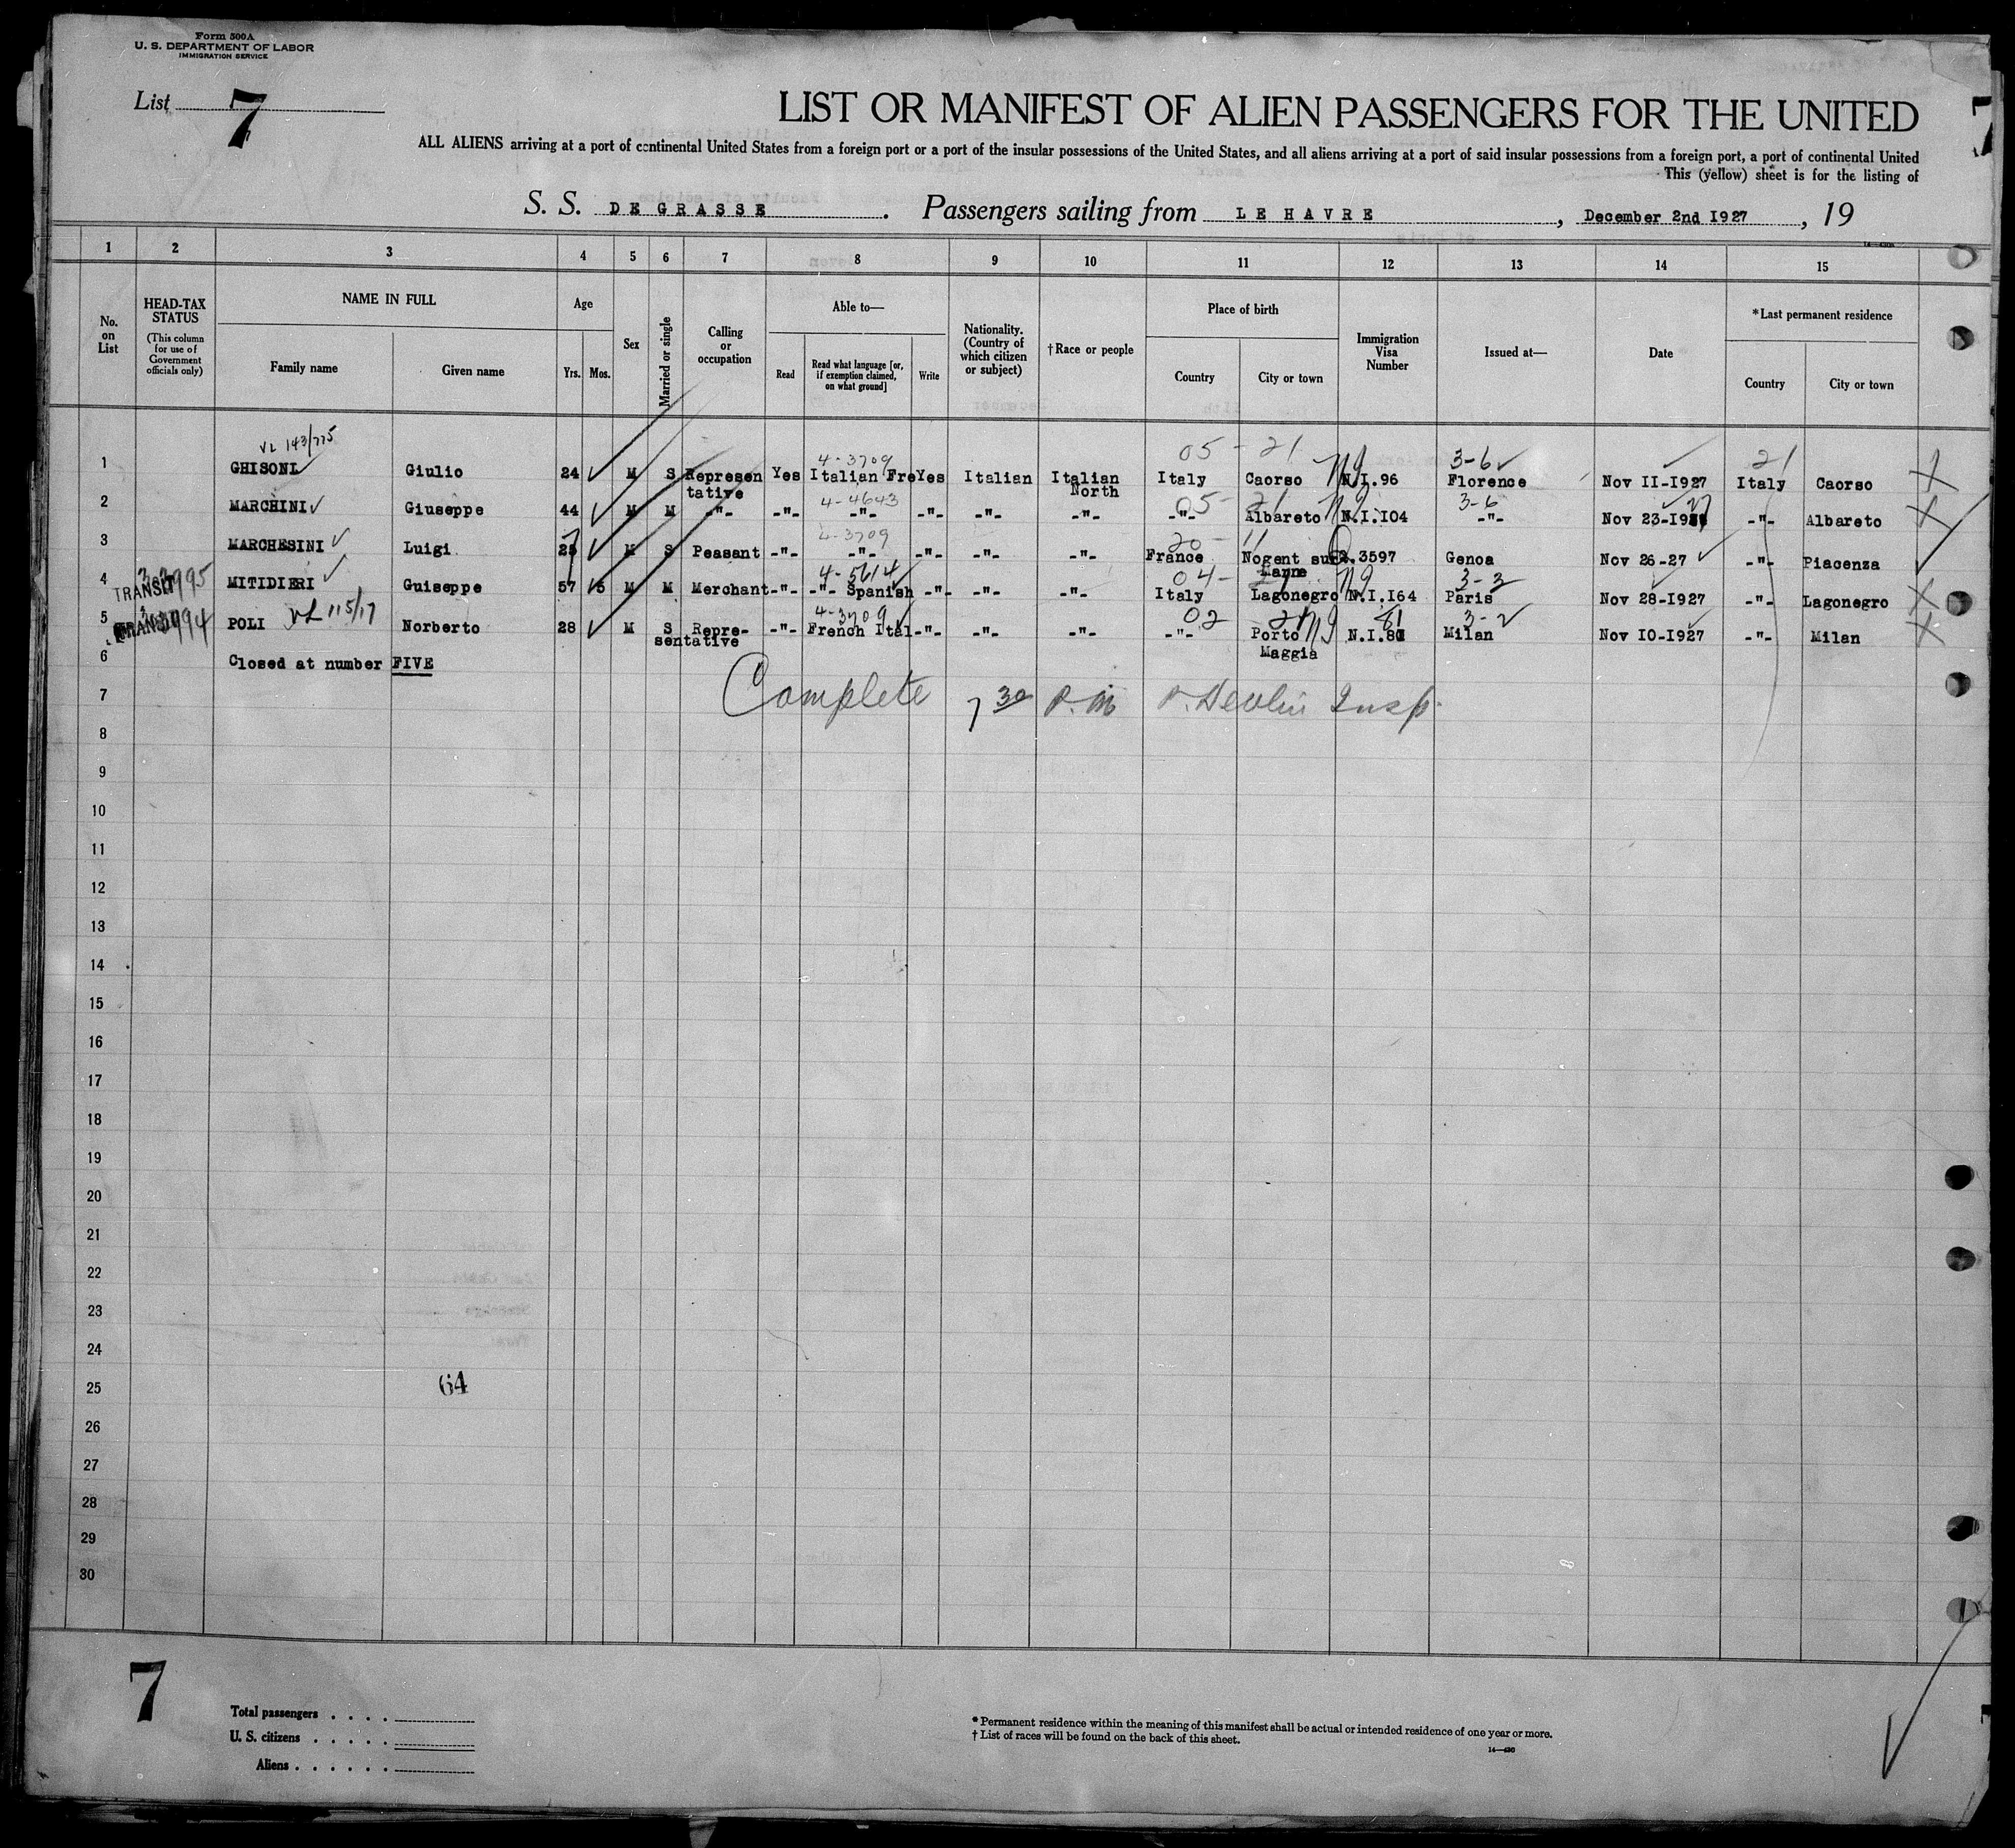 Form 500A
U. S. DEPARTMENT OF LABOR
IMMIGRATION SERVICE
List 7
LIST OR MANIFEST OF ALIEN PASSENGERS FOR THE UNITED
7
ALL ALIENS arriving at a port of continental United States from a foreign port or a port of the insular possessions of the United States, and all aliens arriving at a port of said insular possessions from a foreign port, a port of continental United
This (yellow) sheet is for the listing of
S. S. DE GRASSE. Passengers sailing from LE HAVRE, December 2nd I927, 19
1 2 3 4 5 6 7 8 9 10 11 12 13 14 15
No. on List
HEAD-TAX STATUS
(This column for use of Government officials only)
NAME IN FULL
Family name Given name
Age
Yrs. Mos.
Sex
Married or single
Calling or occupation
Able to—
Read
Read what language [or, if exemption claimed, on what ground]
Write
Nationality. (Country of which citizen or subject)
†Race or people
Place of birth
Country City or town
Immigration Visa Number
Issued at—
Date
*Last permanent residence
Country City or town
VL 143/775 4-3709 05-21 3-6 21
1 GHISONI Giulio 24 M S Represen Yes Italian Fre Yes Italian Italian Italy Caorso N.I.96 Florence Nov II-I927 Italy Caorso X
tative North
4-4643 05-21 3-6 27
2 MARCHINI Giuseppe 44 M M -"- -"- -"- -"- -"- -"- -"- Albareto N.I.I04 -"- Nov 23-I92 -"- Albareto X
4-3709 20-11
3 MARCHESINI Luigi 2 M S Peasant -"- -"- -"- -"- -"- France Nogent sur 3597 Genoa Nov 26-27 -"- Piacenza
4-5614 04- 3-3
4 TRANSIT MITIDIERI Guiseppe 57 5 M M Merchant -"- -"- Spanish -"- -"- -"- Italy Lagonegro N.I.I64 Paris Nov 28-I927 -"- Lagonegro X
VL 115/17 4-3709 02 21 81 3-2
5 TRANSIT POLI Norberto 28 M S Repre- -"- French Ital -"- -"- -"- -"- Porto N.I. Milan Nov I0-I927 -"- Milan X
sentative Maggia
6 Closed at number FIVE
7 Complete 7 30 P.M. P. Devlin Insp.
8
9
10
11
12
13
14
15
16
17
18
19
20
21
22
23
24
25 64
26
27
28
29
30
7
Total passengers . . . .
U. S. citizens . . . . .
Aliens . . . . . .
* Permanent residence within the meaning of this manifest shall be actual or intended residence of one year or more.
† List of races will be found on the back of this sheet.